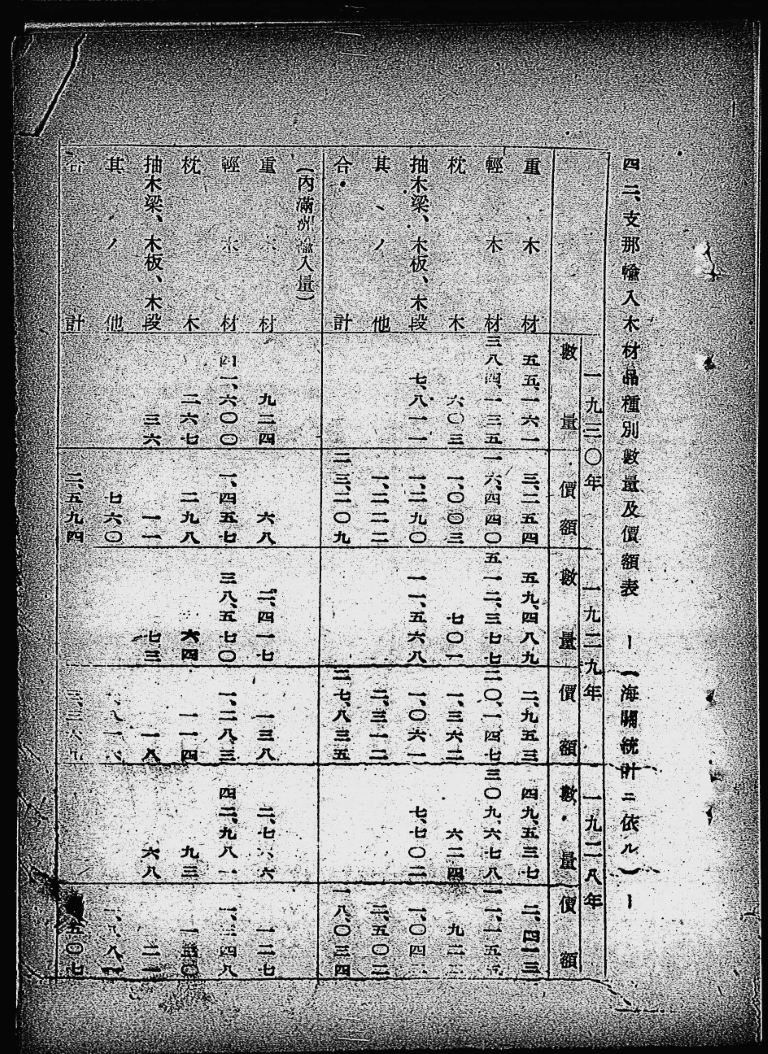 四二、支那輸入木材品種別數量及價額表 ー(海關統計ニ依ル)ー
一九三〇年 一九二九年 一九二八年
數量 價額 數量 價額 數量 價額
重木材 五五、一六一 三、二五四 五九、四八九 二、九五三 四九、五三七 二、四一三
輕木材 三八四、一三五 一六、四四〇 五一二、三七七 二〇、一四七 三〇九、六七八 一一、一五五
枕木 六〇三 一、〇〇三 七〇一 一、三六二 六二四 九二二
抽木梁、木板、木段 七、八一一 一、二九〇 一一、五六八 一、〇六一 七、七〇二 一、〇四二
其ノ他 一、二二二 二、三一二 二、五〇二
合計 二三、二〇九 二七、八三五 一八、〇三四
(內滿洲輸入量)
重木材 九二四 六八 二、四一七 一三八 一二七
輕木材 四一、六〇〇 一、四五七 三八、五七〇 一、二八三 四二、九八一 一、三四八
枕木 二六七 二九八 六四 一一四 九三 一三〇
抽木梁、木板、木段 三六 一一 七三 一八 六八 二一
其ノ他 七六〇 一、八一六
合計 二、五九四 三、三六九